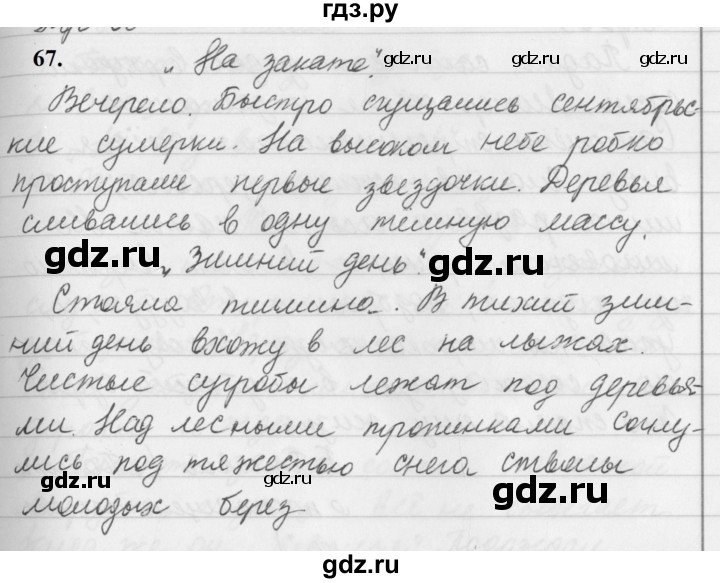 гдз.ру
67. „На закате".
gdz.ru gdz.ru
Вечерело. Быстро сгущались сентябрьс-
кие сумерки. На высоком небе робко
gdz.ru gdz.ru
проступали первые звездочки. Деревья
сливались в одну темную массу.
gdz.ru „Зимний день". gdz.ru
Стояла тишина. В тихий зим-
ний день вхожу в лес на лыжах.
gdz.ru gdz.ru
Чистые сугробы лежат под деревья-
ми. Над лесными тропинками согну-
лись под тяжестью снега стволы
gdz.ru gdz.ru
молодых берез
gdz.ru
gdz.ru